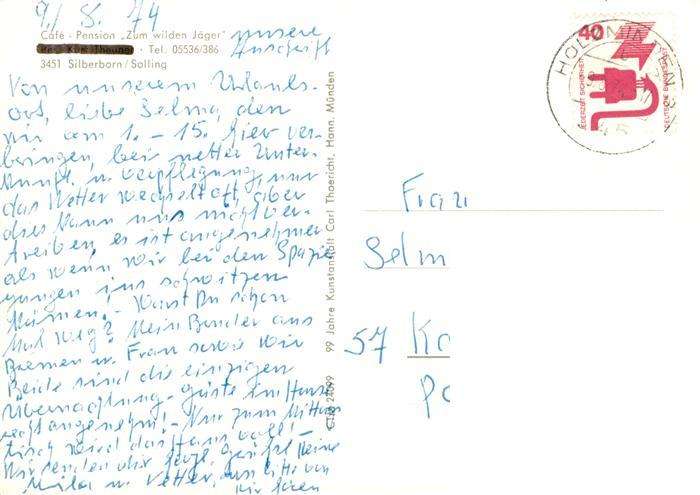 9./8. 74
Café - Pension „Zum wilden Jäger"
unsere
Anschrift
Tel. 05536/386
3451 Silberborn/Solling
Von unserem Urlaubs-
ort, liebe Selma, den
wir am 1. - 15. hier ver-
bringen, bei netter Unter-
kunft u. Verpflegung, nur
das Wetter wechselt oft, aber
das kann uns nicht ver-
treiben, es ist angenehmer
als wenn wir bei den Spazier
gängen ins schwitzen
kämen. - Warst Du schon
Mal weg? Mein Bruder aus
Bremen u. Frau sowie wir
Beide sind die einzigen
Übernachtung-gäste im Hause
recht angenehm! - Nur zum Mittag
tisch wird das Haus voll! -
Wir senden Dir herzl. Grüße
u. Vetter,
Wir
CTHM 24099
99 Jahre Kunstanstalt Carl Thoericht, Hann. Münden
40
JEDERZEIT SICHERHEIT
DEUTSCHE BUNDESPOST
HOLZMINDEN
345
Frau
Selm
57 Ka